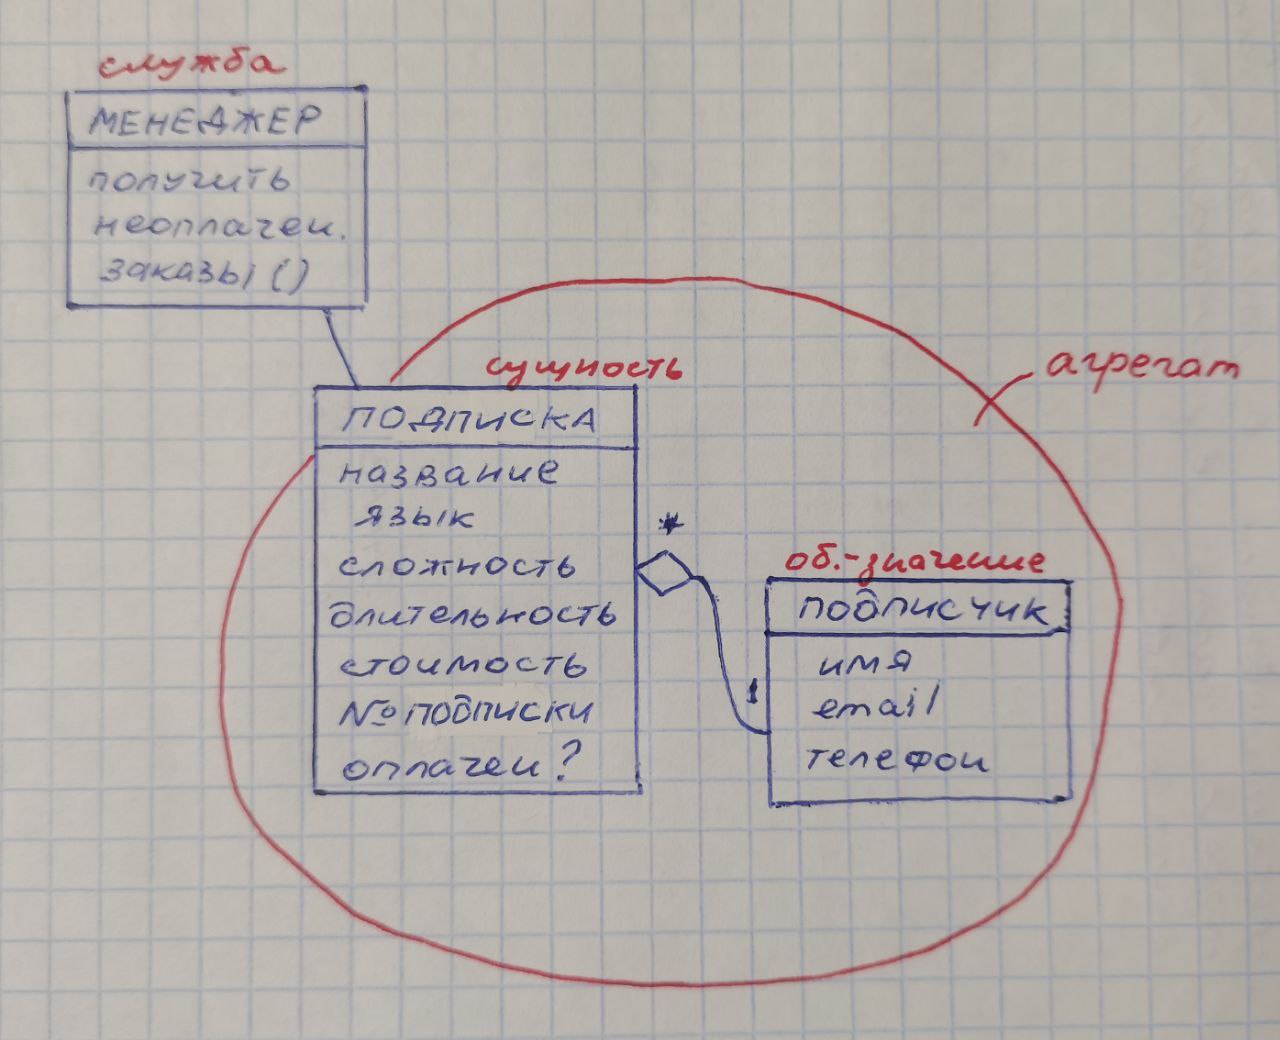 служба
МЕНЕДЖЕР
получить
неоплачен.
заказы ()
сущность
агрегат
ПОДПИСКА
название
язык
сложность
длительность
стоимость
№ подписки
оплачен?
*
об.-значение
подписчик
1
имя
email
телефон